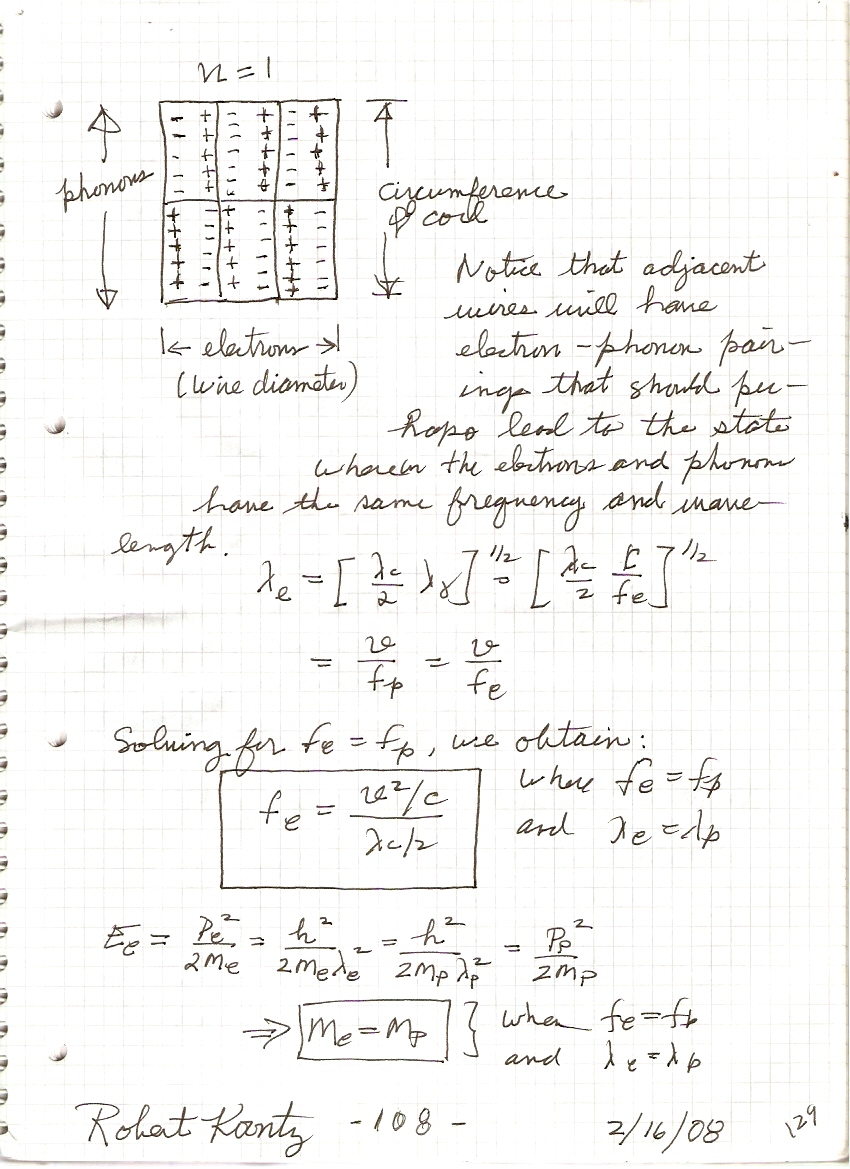 n = 1
- + - + - +
- + - + - +
- + - + - +
- + - + - +
- + - + - +
+ - + - + -
+ - + - + -
+ - + - + -
+ - + - + -
+ - + - + -
phonons
circumference
of coil
|← electrons →|
(wire diameter)
Notice that adjacent
wires will have
electron-phonon pair-
ings that should per-
haps lead to the state
wherein the electrons and phonons
have the same frequency and wave-
length.
λe = [λc/2 λγ]^1/2 = [λc/2 c/fe]^1/2
= v/fp = v/fe
Solving for fe = fp, we obtain:
fe = (v²/c)/(λc/2)
where fe = fp
and λe = λp
Ee = Pe²/2me = h²/2meλe² = h²/2mpλp² = Pp²/2mp
⇒ me = mp } when fe = fp
and λe = λp
Robert Kantz - 108 - 2/16/08 129